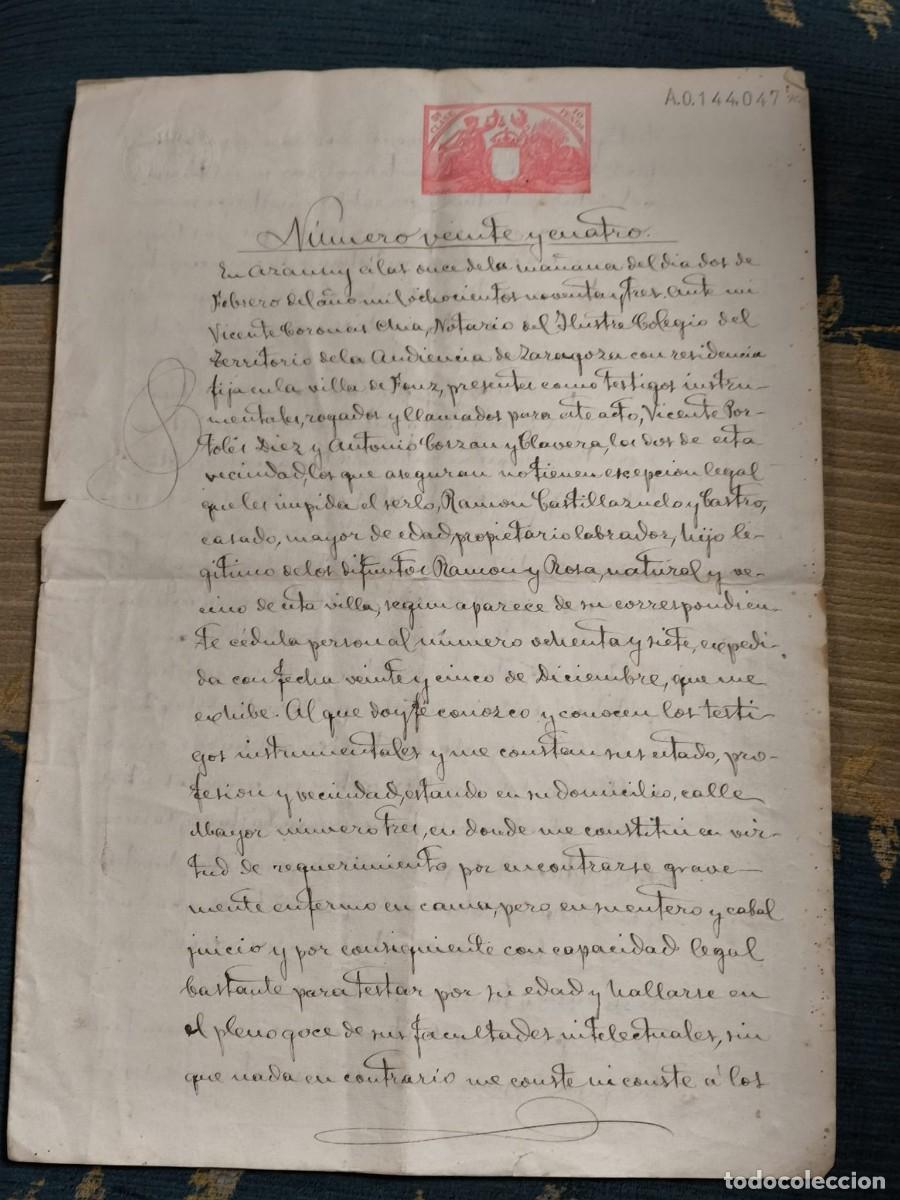 A.0.144.047
8ª CLASE
10 PESETAS
Número veinte y cuatro.
En Azanuy á las once de la mañana del dia dos de
Febrero del año mil ochocientos noventa y tres. Ante mi
Vicente Coronas Chia, Notario del Ilustre Colegio del
Territorio de la Audiencia de Zaragoza con residencia
fija en la villa de Fonz, presentes como testigos instru-
mentales, rogados y llamados para este acto, Vicente Por-
tolés Diez y Antonio Coszan y Clavera, los dos de esta
vecindad, los que aseguran no tienen escepcion legal
que les impida el serlo, Ramon Castillazuelo y Castro,
casado, mayor de edad, propietario labrador, hijo le-
gitimo de los difuntos Ramon y Rosa, natural y ve-
cino de esta villa, segun aparece de su correspondien-
te cédula personal número ochenta y siete, expedi-
da con fecha veinte y cinco de Diciembre, que me
exhibe. Al que doy fé conozco y conocen los testi-
gos instrumentales y me constan su estado, pro-
fesion y vecindad, estando en su domicilio, calle
Mayor número tres, en donde me constitui en vir-
tud de requerimiento por encontrarse grave-
mente enfermo en cama, pero en su entero y cabal
juicio y por consiguiente con capacidad legal
bastante para testar por su edad y hallarse en
el pleno goce de sus facultades intelectuales, sin
que nada en contrario me conste ni conste á los
todocoleccion